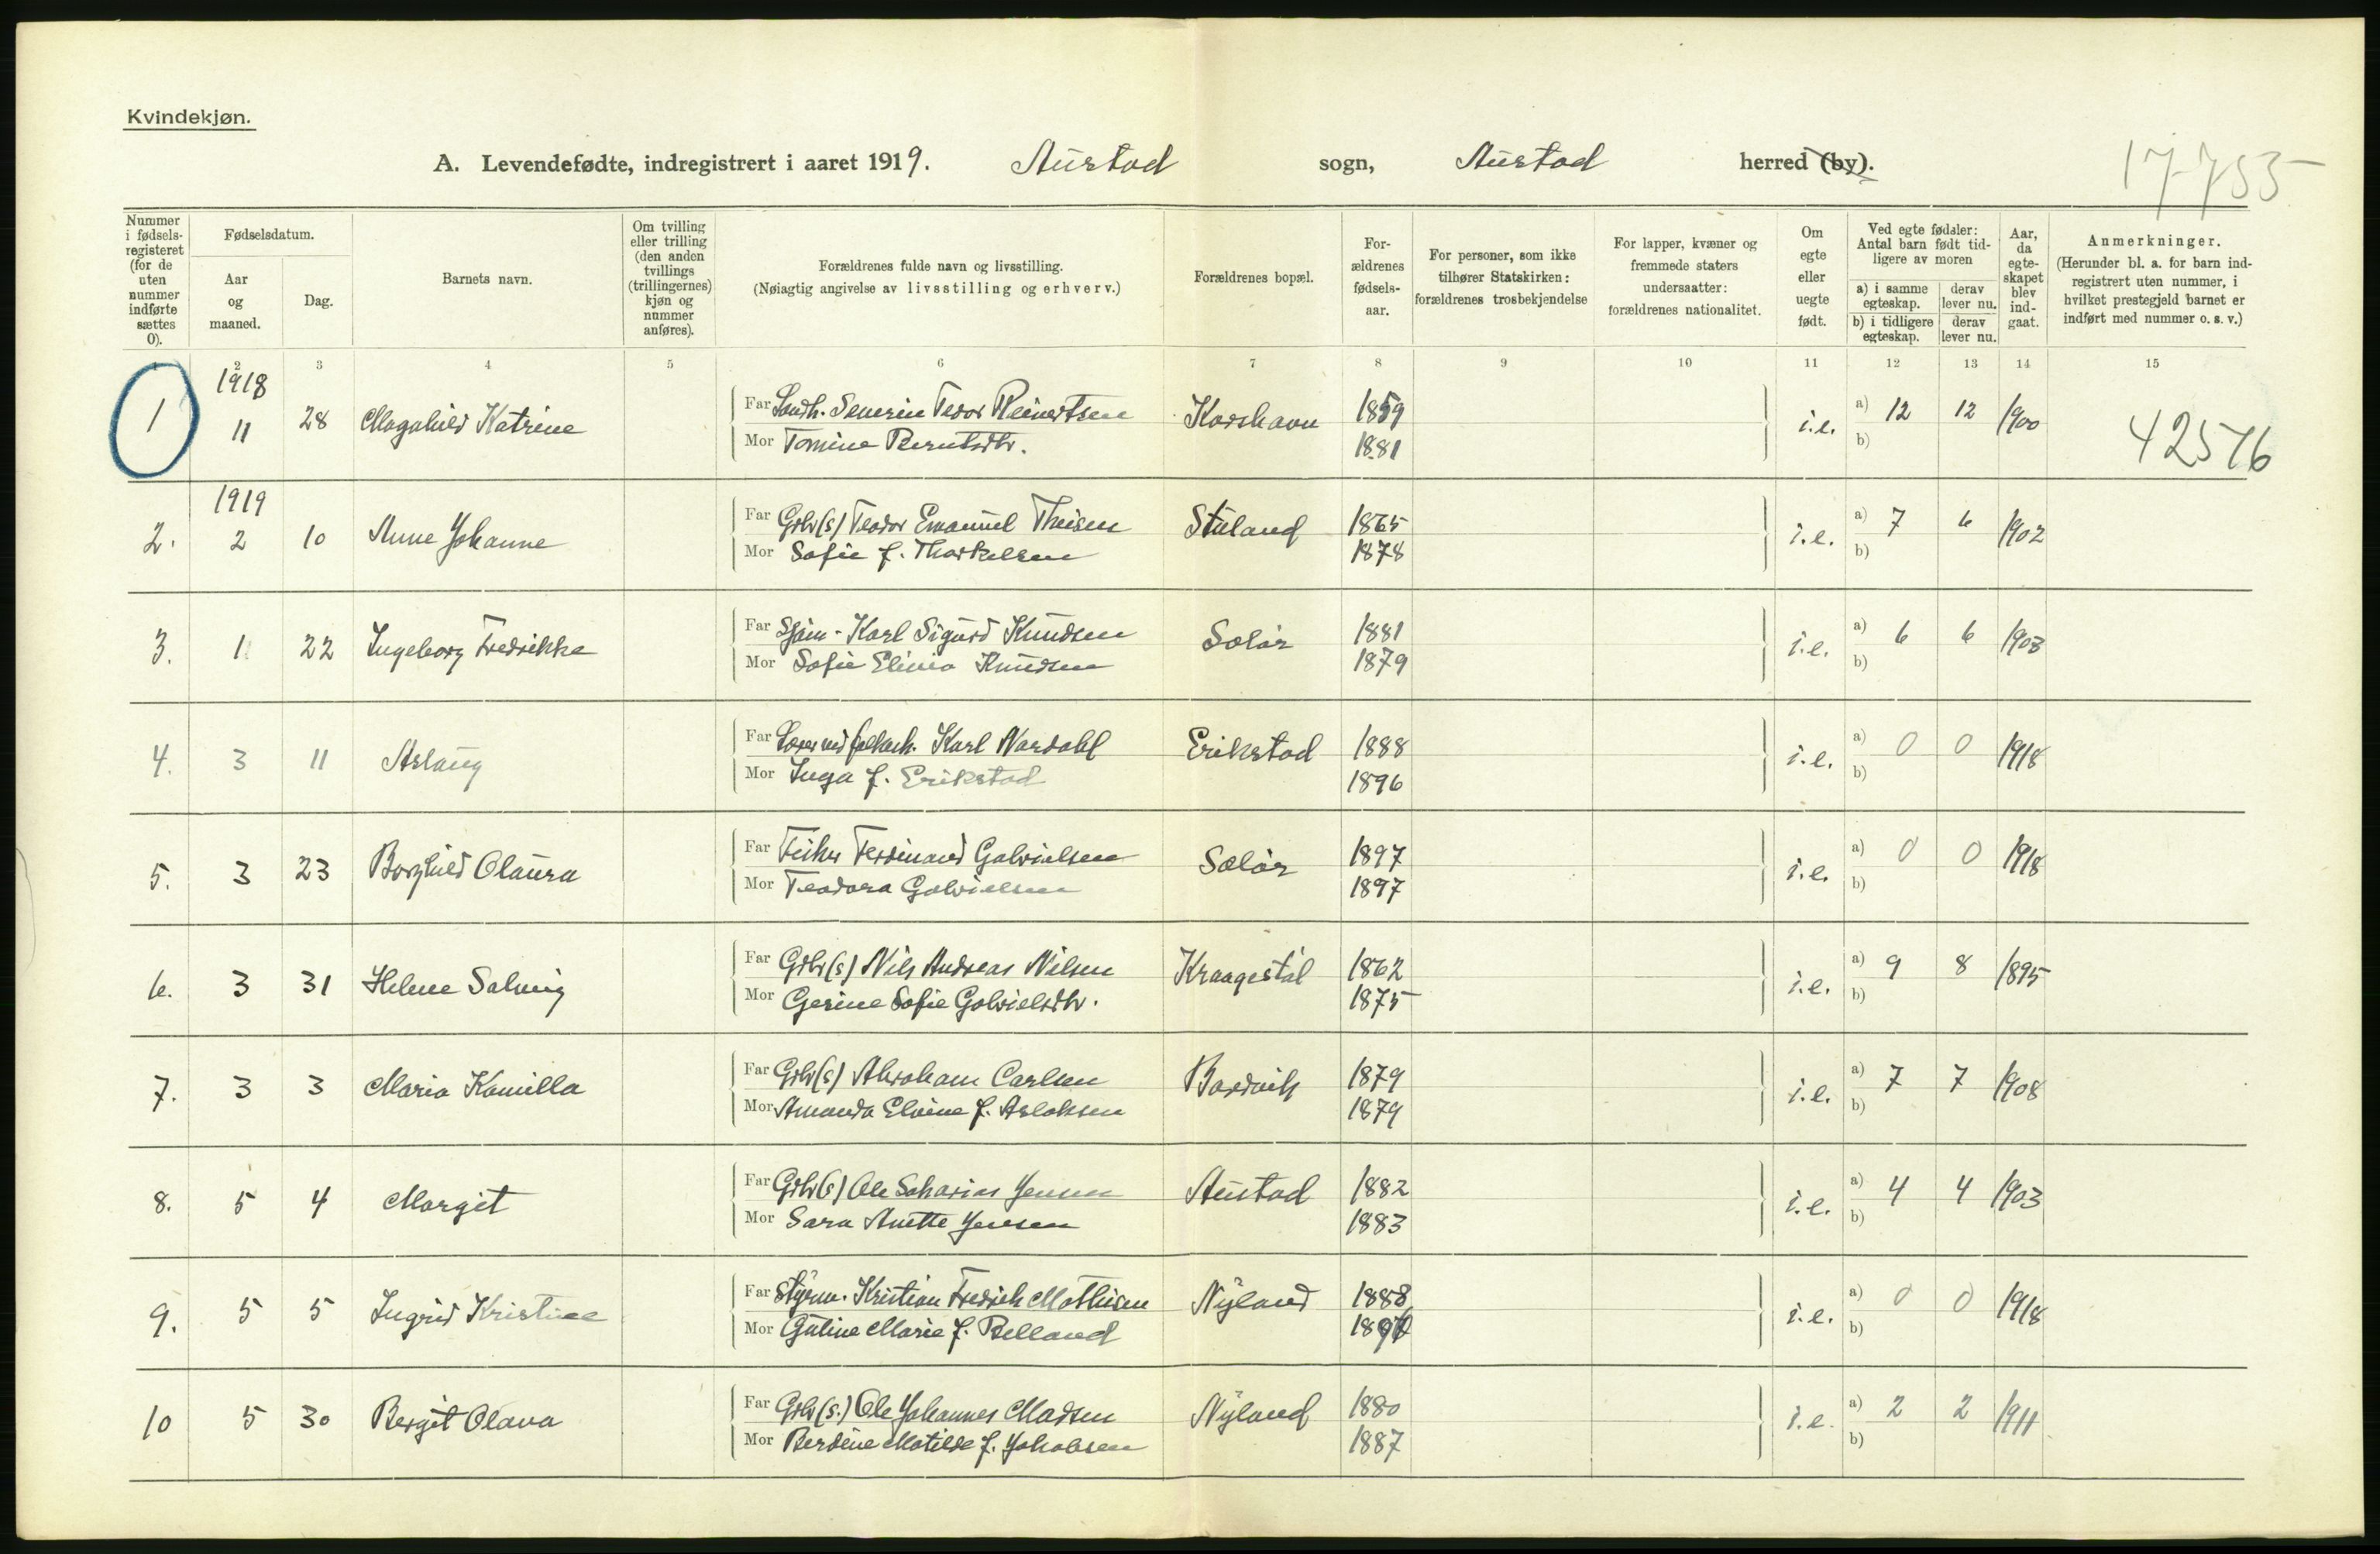 Kvindekjøn.
A. Levendefødte, indregistrert i aaret 1919. Austad sogn, Austad herred (by).
17755
Nummer i fødsels-registeret (for de uten nummer indførte sættes 0).
Fødselsdatum.
Aar og maaned.
Dag.
Barnets navn.
Om tvilling eller trilling (den anden tvillings (trillingernes) kjøn og nummer anføres).
Forældrenes fulde navn og livsstilling.
(Nøiagtig angivelse av livsstilling og erhverv.)
Forældrenes bopæl.
For-ældrenes fødsels-aar.
For personer, som ikke tilhører Statskirken: forældrenes trosbekjendelse
For lapper, kvæner og fremmede staters undersaatter: forældrenes nationalitet.
Om egte eller uegte født.
Ved egte fødsler: Antal barn født tid-ligere av moren
a) i samme egteskap.
derav lever nu.
b) i tidligere egteskap.
derav lever nu.
Aar, da egte-skapet blev ind-gaat.
Anmerkninger.
(Herunder bl. a. for barn ind-registrert uten nummer, i hvilket prestegjeld barnet er indført med nummer o. s. v.)
2 3 4 5 6 7 8 9 10 11 12 13 14 15
1918
1 11 28 Magnhild Katrine Far Severin Teodor Reinertsen Korshavn 1859 i.e. a) 12 12 1900
Mor Tomine Berntsdtr. 1881 b)
42576
1919
2. 2 10 Anne Johanne Far Grbr(s) Teodor Emanuel Theisen Stuland 1865 i.e. a) 7 6 1902
Mor Sofie f. Thorkelsen 1878 b)
3. 1 22 Ingeborg Fredrikke Far Sjøm. Karl Sigurd Knudsen Solør 1881 i.e. a) 6 6 1903
Mor Sofie Elinia Knudsen 1879 b)
4. 3 11 Aslaug Far Karl Nardahl Erikstad 1888 i.e. a) 0 0 1918
Mor Inga f. Erikstad 1896 b)
5. 3 23 Borghild Olaura Far Fisker Ferdinand Gabrielsen Solør 1897 i.e. a) 0 0 1918
Mor Teodora Gabrielsen 1897 b)
6. 3 31 Helene Solveig Far Grbr(s) Nils Andreas Nilsen Kraagestøl 1862 i.e. a) 9 8 1895
Mor Gerine Sofie Gabrielsdtr. 1875 b)
7. 3 3 Maria Kamilla Far Grbr(s) Abraham Carlsen Bordvik 1879 i.e. a) 7 7 1908
Mor Amanda Elvine f. Aslaksen 1879 b)
8. 5 4 Margit Far Grbr(s) Ole Sakarias Jensen Austad 1882 i.e. a) 4 4 1903
Mor Sara Anette Jensen 1883 b)
9. 5 5 Ingrid Kristine Far Styrm. Kristian Fredrik Mathisen Nyland 1888 i.e. a) 0 0 1918
Mor Guline Marie f. Belland b)
10 5 30 Bergit Olava Far Grbr(s.) Ole Johannes Madsen Nyland 1880 i.e. a) 2 2 1911
Mor Berdine Matilde f. Jakobsen 1887 b)